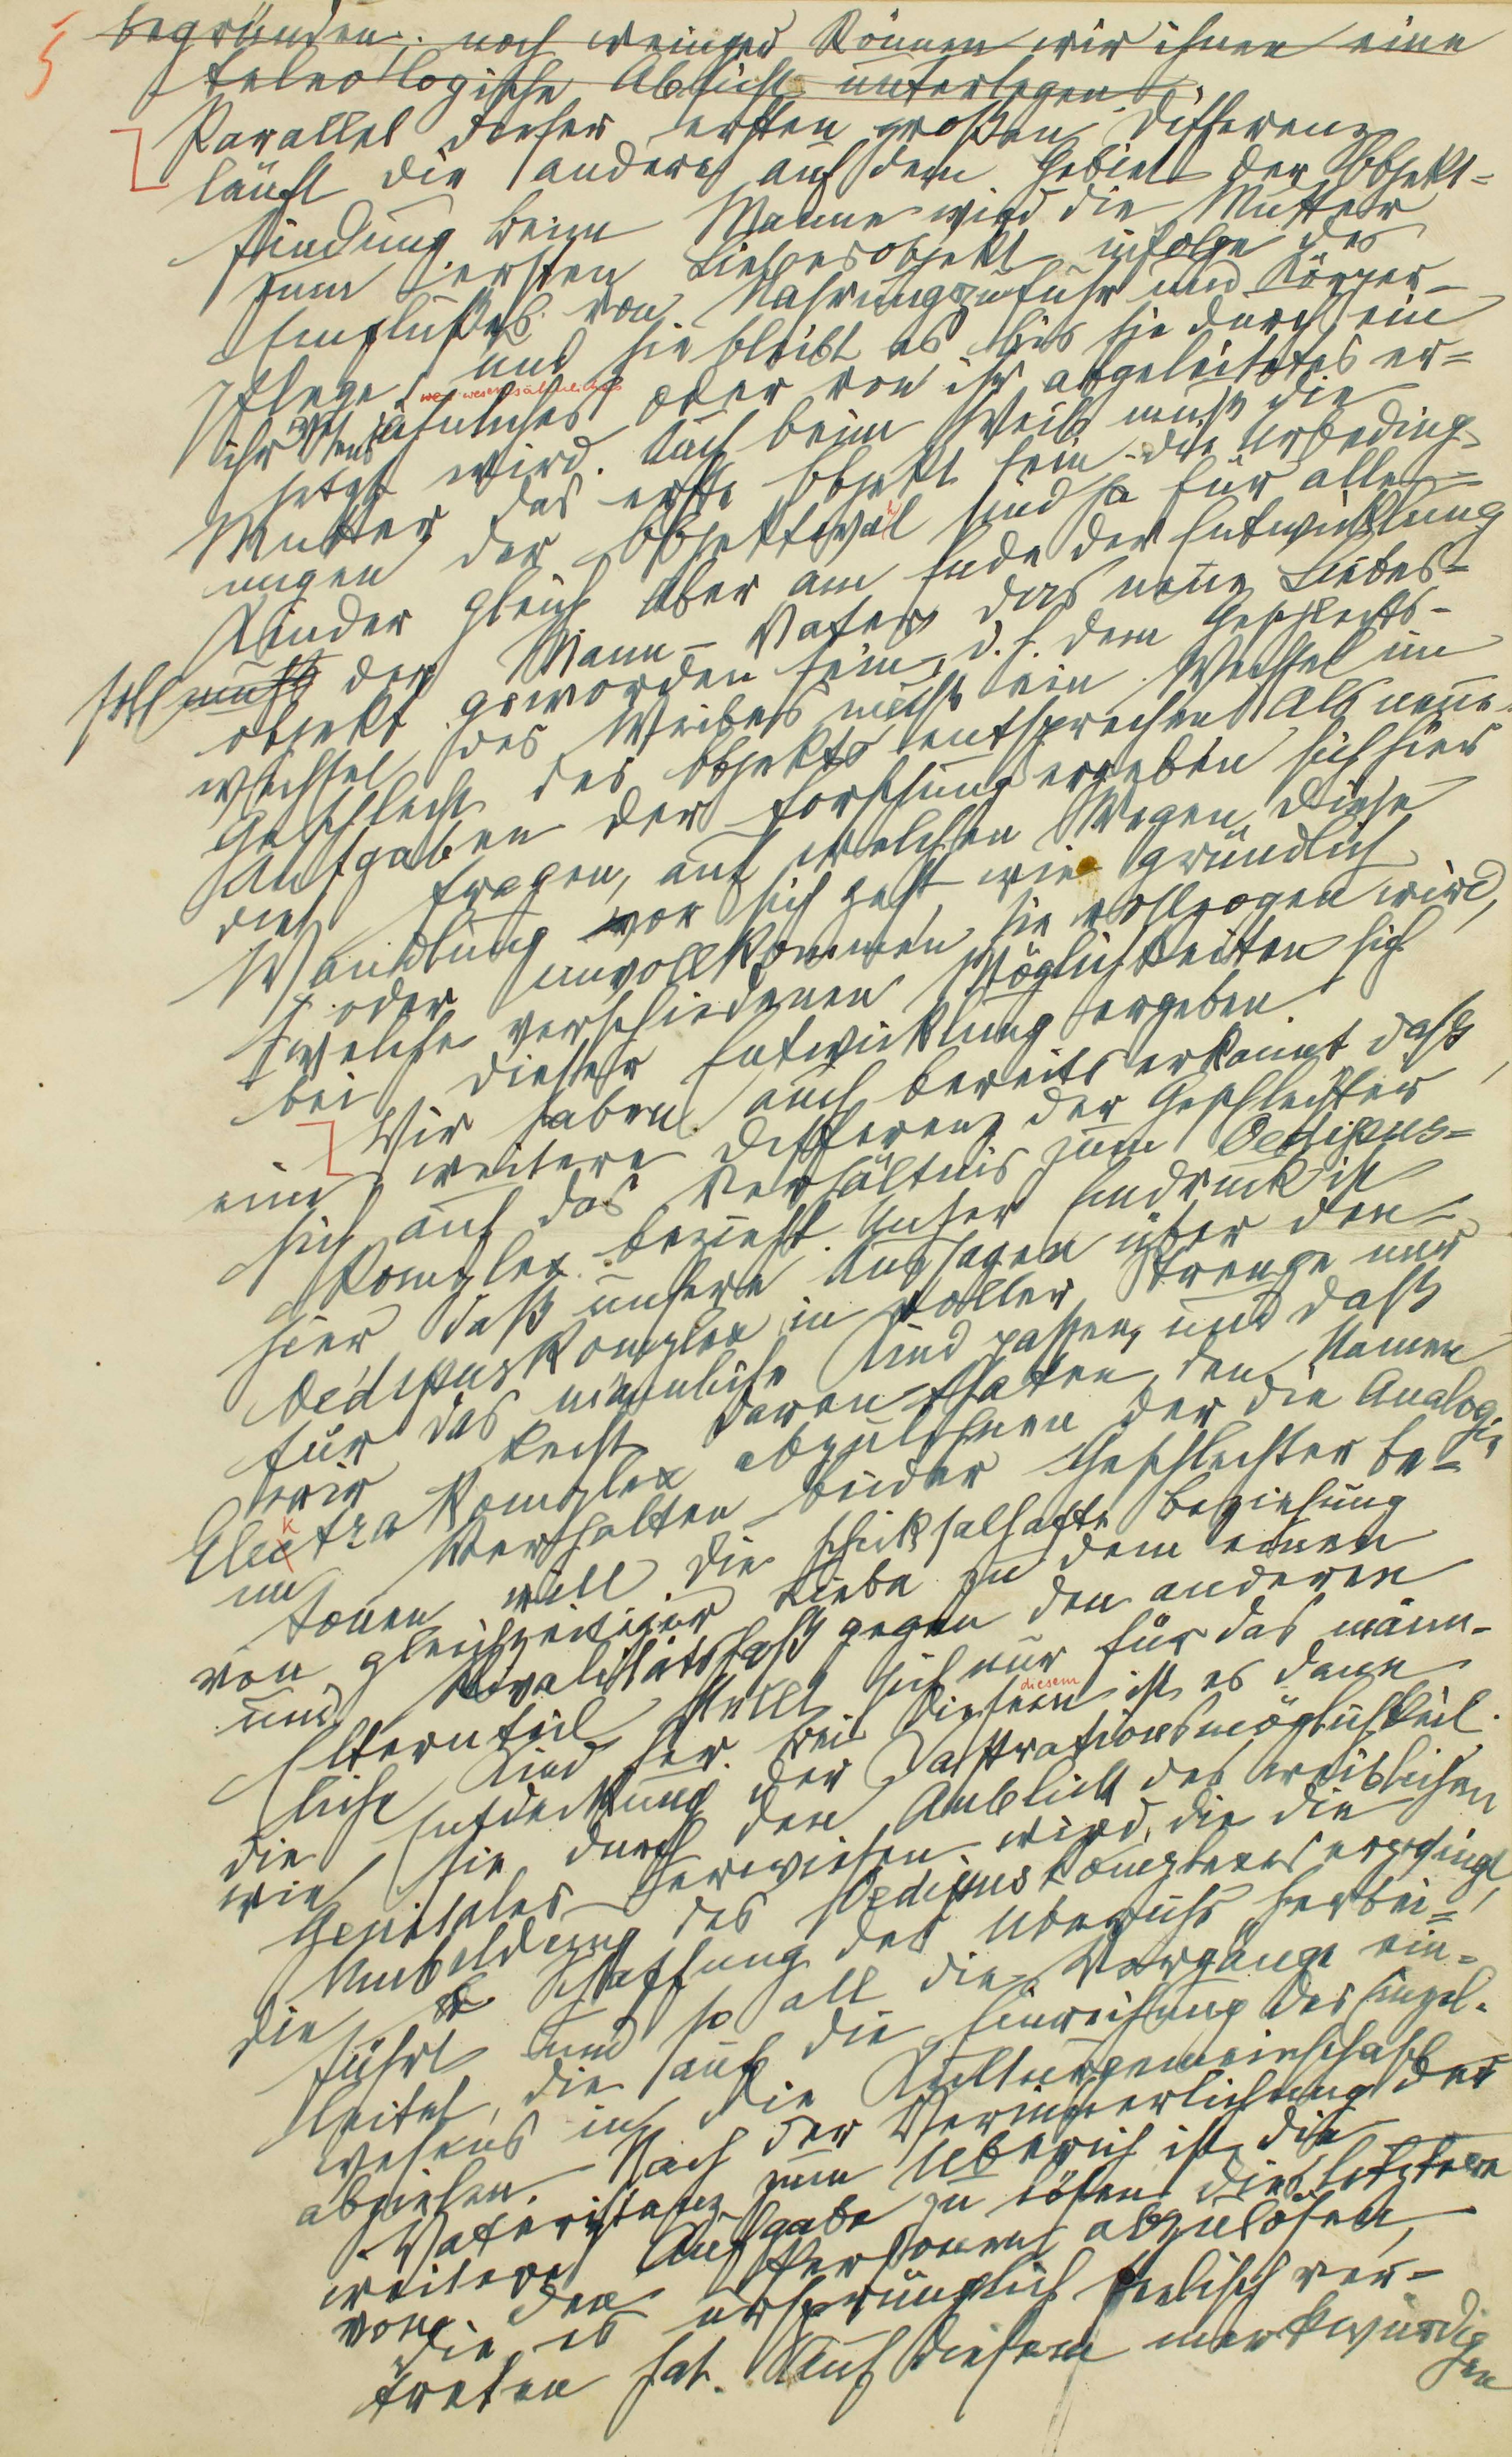 5
begründen; noch weniger können wir ihnen eine
teleologische Absicht unterlegen.
Parallel dieser ersten großen Differenz
läuft die andere auf dem Gebiet der Objekt-
findung. Beim Manne wird die Mutter
zum ersten Liebesobjekt infolge des
Einflußes von Nahrungszufuhr und Körper-
pflege und sie bleibt es bis sie durch ein
wesensähnliches
ihr wesensähnliches oder von ihr abgeleitetes er-
setzt wird. Auch beim Weib muß die
Mutter das erste Objekt sein. Die Urbeding-
ungen der Objektwahl sind ja für alle
Kinder gleich. Aber am Ende der Entwicklung
soll muß der Mann-Vater das neue Liebes-
objekt geworden sein, d. h. dem Geschlechts-
wechsel des Weibes muß ein Wechsel im
Geschlecht des Objekts entsprechen. Als neue
Aufgaben der Forschung ergeben sich hier
die Fragen, auf welchen Wegen diese
Wandlung vor sich geht, wie gründlich
oder unvollkommen sie vollzogen wird,
welche verschiedenen Möglichkeiten sich
bei dieser Entwicklung ergeben.
Wir haben auch bereits erkannt daß
eine weitere Differenz der Geschlechter
sich auf das Verhältnis zum Oedipus-
komplex bezieht. Unser Eindruck ist
hier daß unsere Aussagen über den
Oedipuskomplex in voller Strenge nur
für das männliche Kind passen, und daß
wir Recht daran haben, den Namen
Elektrakomplex abzulehnen der die Analogie
im Verhalten beider Geschlechter be-
tonen will. Die schicksalhafte Beziehung
von gleichzeitiger Liebe zu dem einen
und Rivalitätshaß gegen den anderen
Elternteil stellt sich nur für das männ-
diesem
liche Kind her. Bei diesem ist es dann
die Entdeckung der Kastrationsmöglichkeit
wie sie durch den Anblick des weiblichen
Genitales erwiesen wird, die die
Umbildung des Oedipuskomplexes erzwingt,
die Schaffung des Überichs herbei-
führt und so all die Vorgänge ein-
leitet, die auf die Einreihung des Einzel-
wesens in die Kulturgemeinschaft
abzielen. Nach der Verinnerlichung der
Vaterinstanz zum Ueberich ist die
weitere Aufgabe zu lösen die letztere
von den Personen abzulösen,
die es ursprünglich seelisch ver-
treten hat. Auf diesem merkwürdigen